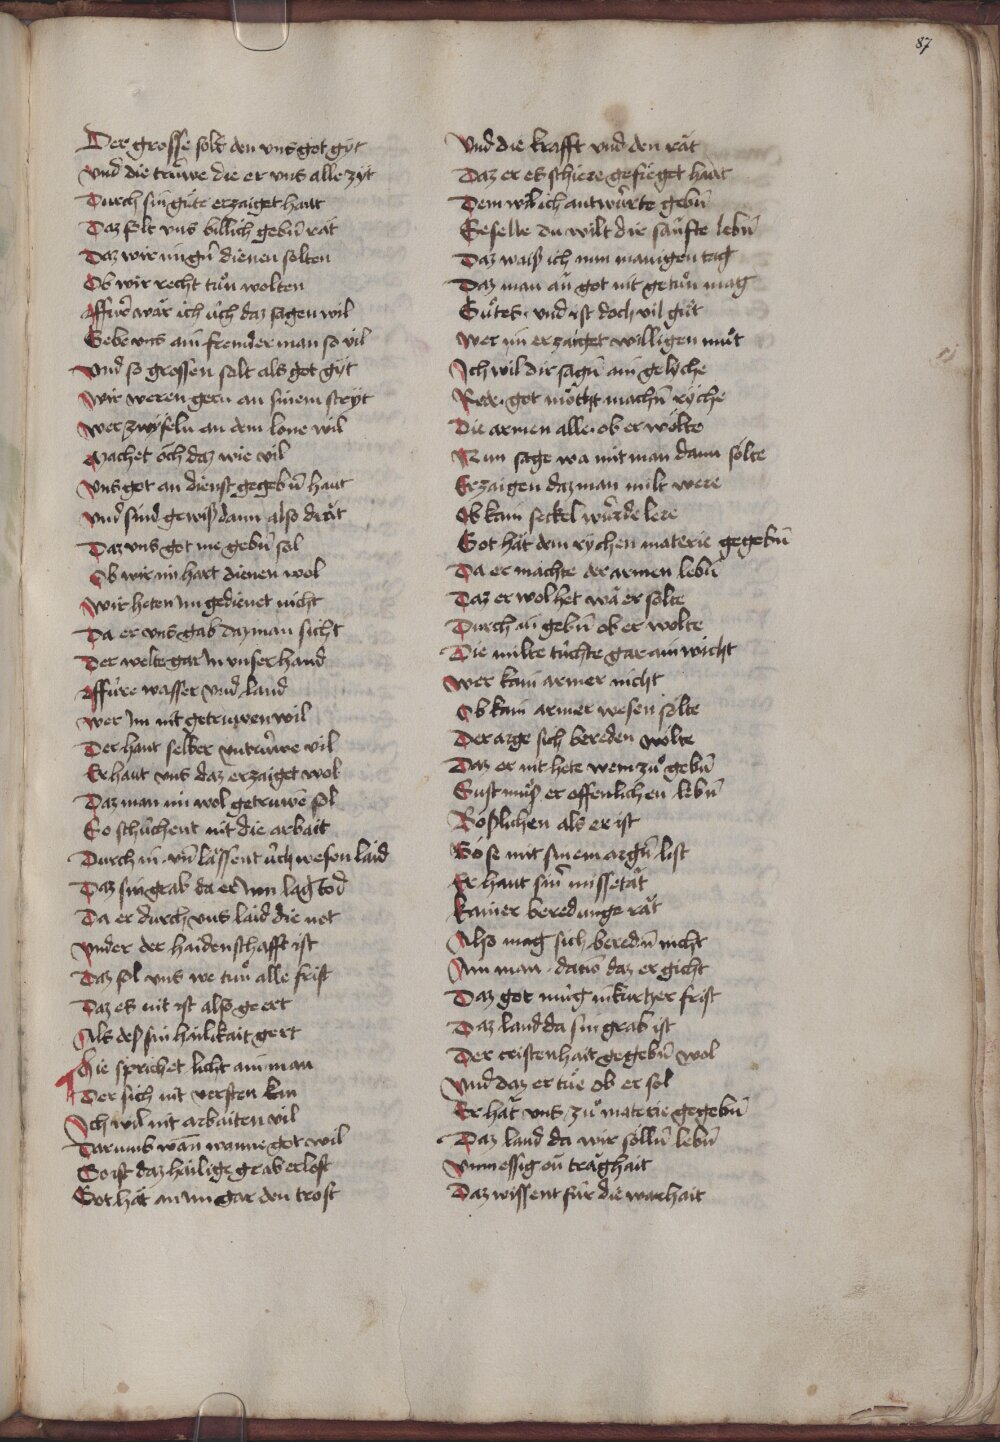 87
Der grosse solt den vns got gyt
Vnd die trüwe die er vns alle zyt
Durch sin güte erzaiget haut
Daz solt vns billich gebn̄ rät
Daz wir im gn̄ dienen solten
Ob wir recht tuͦn wolten
Affür wär ich üch daz sagen wil
Gebe vns ain fremder man so vil
Vnd so grossen solt als got gyt
Wir weren gern an sinem stryt
Wer zwyfeln an dem lone wil
Machet öch daz wie vil
Vns got an dienst gegebn̄ haut
Vnd sind gewiß dann also drät
Daz vns got me gebn̄ sol
Ob wir im hart dienen wol
Wir heten Im gedienet nicht
Da er vns gab daz man sicht
Der welte gar In vnser hand
Affüre wasser vnd land
Wer Im nit getruwen wil
Der haut selber vntrüwe vil
Er haut vns daz erzaiget wol
Daz man im wol getruwē sol
So schüchent nit die arbait
Durch in vn̄ lässent üch wesen laid
Daz sin grab da er Inn lag tod
Da er durch vns laid die not
Vnder der haidenschafft ist
Daz sol vns we tuͦn alle frist
Daz es nit ist also geert
Als des sin hailikait gert
Hie sprichet licht ain man
Der sich nit versten kan
Ich wil nit arbaiten vil
Darumb wan wanne got wil
So ist daz hailige grab erlost
Got hät an im gar den trost
Vnd die krafft vnd den rät
Daz er es schiere gesieget haut
Dem wil ich antwürte gebn̄
Geselle du wilt dir säufte lebn̄
Daz waiß ich nun manigen tag
Daz man an got nit getuͦn mag
Guͦtes vnd ist doch vil guͦt
Wer im erzaiget willigen muͦt
Ich wil dir sagn̄ ain gelyche
Rede got möcht machn̄ ryche
Die armen alle ob er wölte
Nun sage wa mit man dann sölte
Erzaigen daz man milt were
Ob kain seckel würde lere
Got hät dem rychen materie gegebn̄
Da er machte der armen lebn̄
Daz er wol het wä er solte
Durch in gebn̄ ob er wolte
Die milte tüchte gar ain wicht
Wer kain armer nicht
Ob kain armer wesen sölte
Der arge sich bereden wölte
Daz er nit hete wem zuͦ gebn̄
Sust muͦß er offenlichen lebn̄
Bößlichen als er ist
Böse mit sinem argn̄ list
Er haut sin̄ missetät
Kainer beredunge rät
Also mag sich beredn̄ nicht
Ain man darū daz er gicht
Daz got müg in kurtzer frist
Daz land da sin grab ist
Der cristenhait gegebn̄ wol
Vnd daz er tuͤe ob er sol
Er hät vns zuͦ materie gegebn̄
Daz land da wir sölln̄ lebn̄
Vnmessig on träghait
Daz wissent für die warhait